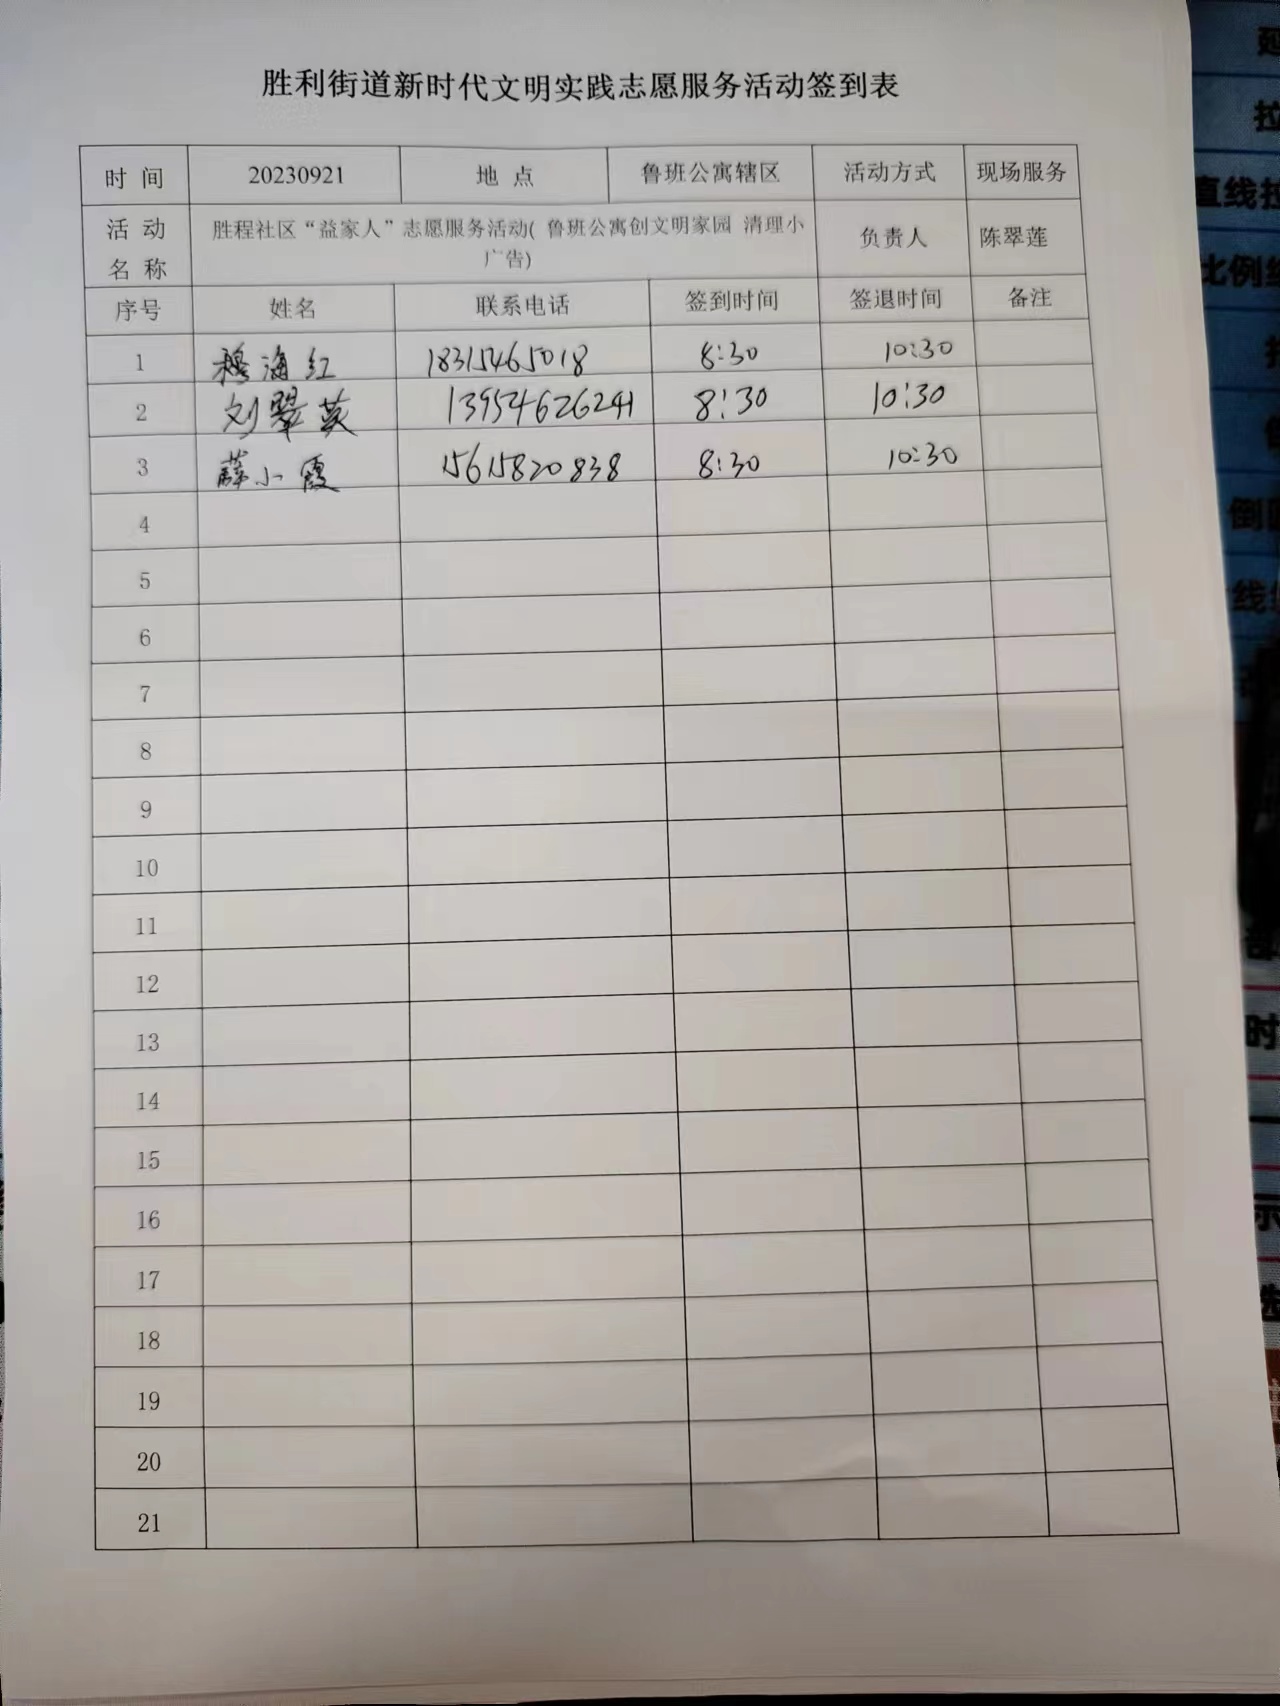 胜利街道新时代文明实践志愿服务活动签到表
时 间 20230921 地 点 鲁班公寓辖区 活动方式 现场服务
活 动 名 称 胜程社区“益家人”志愿服务活动( 鲁班公寓创文明家园 清理小
广告) 负责人 陈翠莲
序号 姓名 联系电话 签到时间 签退时间 备注
1 穆海红 18315465018 8:30 10:30
2 刘翠英 13954626241 8:30 10:30
3 薛小霞 15615820838 8:30 10:30
4
5
6
7
8
9
10
11
12
13
14
15
16
17
18
19
20
21
直线
比例
倒
线
部
时
示